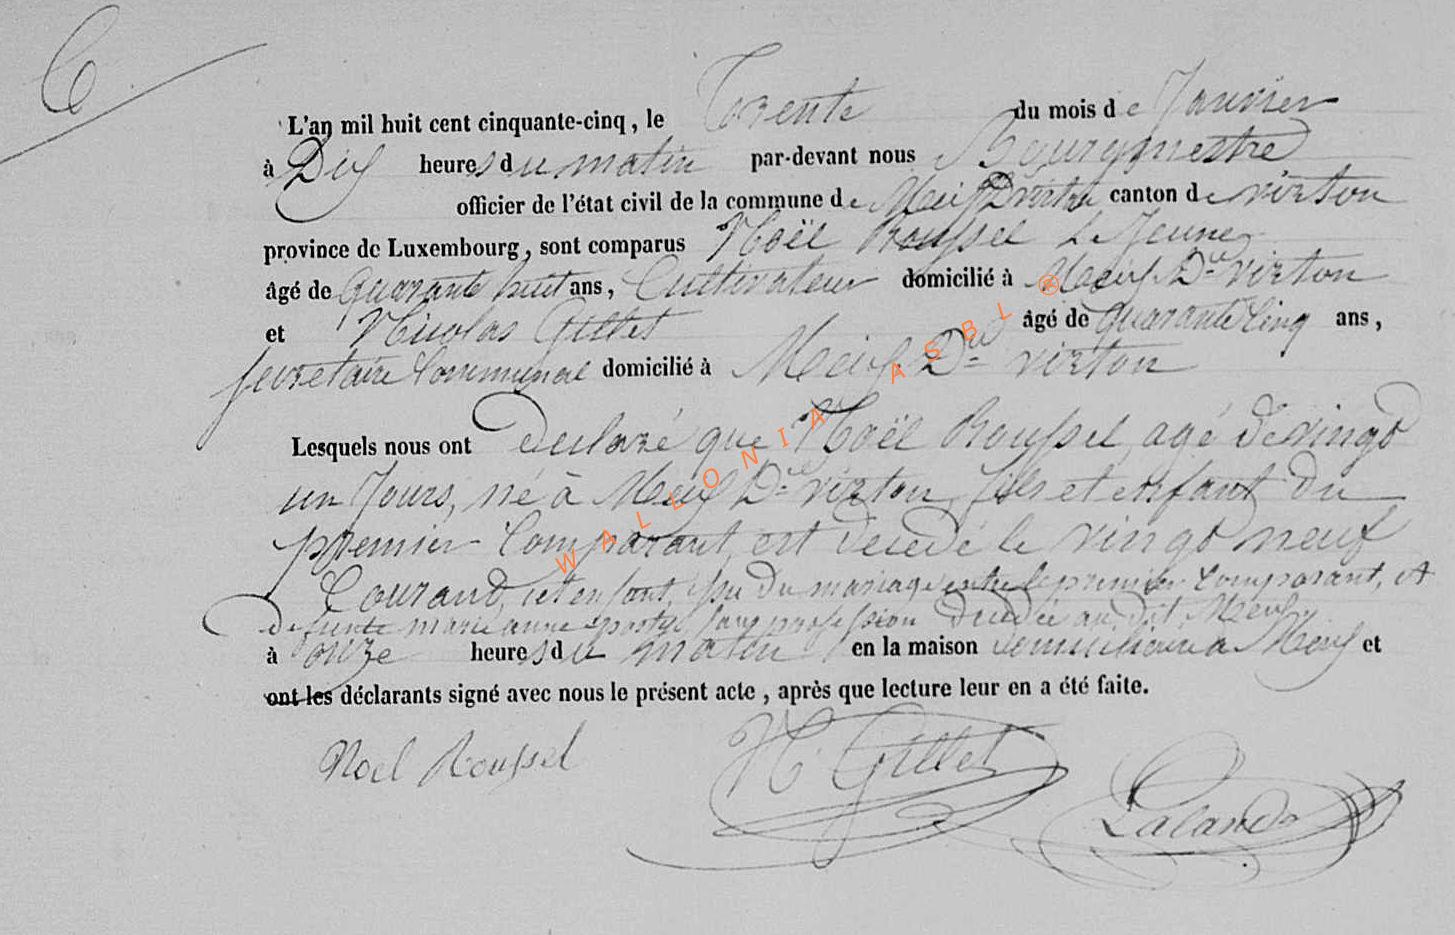 6
L'an mil huit cent cinquante-cinq, le Trente du mois de Janvier
à Dix heures du matin par-devant nous Bourgmestre
officier de l'état civil de la commune de Meix Dt virton canton de virton
province de Luxembourg, sont comparus Noël Roussel Le Jeune
âgé de quarante huit ans, Cultivateur domicilié à Meix Dt virton
et Nicolas Gillet âgé de quarante Cinq ans,
secretaire Communal domicilié à Meix Dt virton
Lesquels nous ont declaré que Noël Roussel, agé de vingt
un Jours, né à Meix Dt virton, fils et enfant du
premier Comparant, est decedé le vingt neuf
Courant, cet enfant, issu du mariage entre le premier Comparant, et
defunte marie anne sans profession decedée au dit Meix
à onze heures du matin en la maison à Meix et
ont les déclarants signé avec nous le présent acte, après que lecture leur en a été faite.
Noel Roussel N. Gillet Lalande
WALLONIA ASBL ®